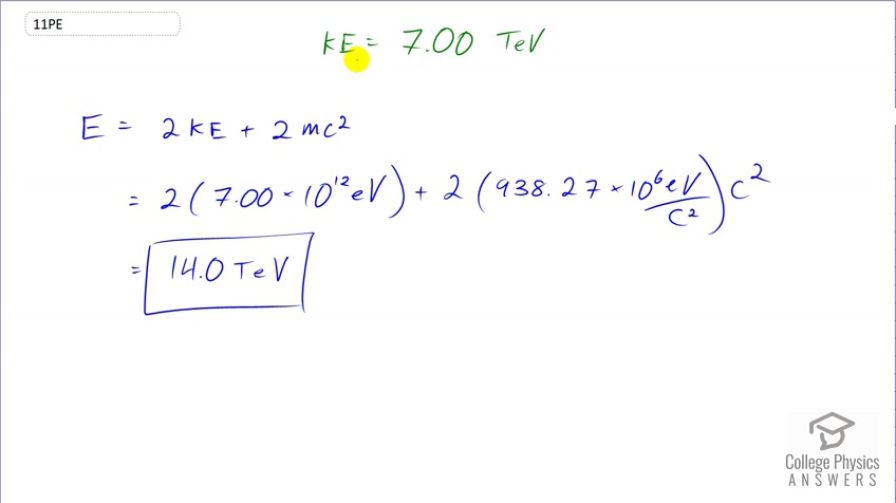 11PE
KE = 7.00 TeV
E = 2KE + 2mc²
= 2(7.00 × 10¹² eV) + 2(938.27 × 10⁶ eV/c²)c²
= 14.0 TeV
College Physics
ANSWERS